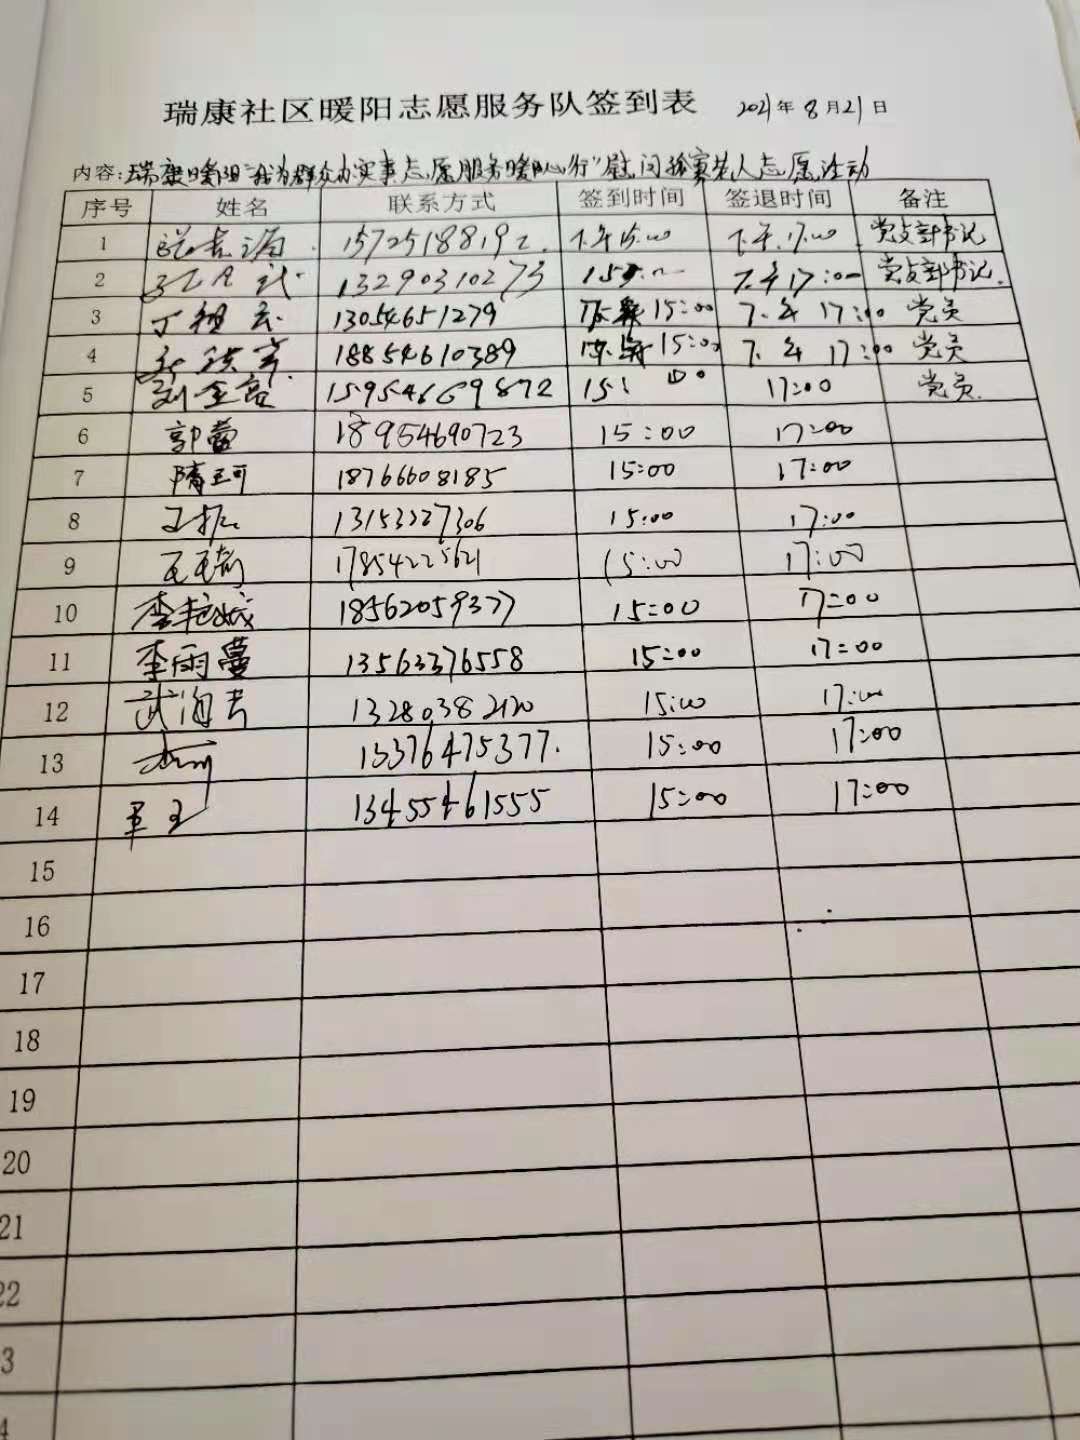 瑞康社区暖阳志愿服务队签到表 2021年8月21日
内容:瑞康暖阳"我为群众办实事志愿服务暖心行"慰问 老人志愿活动
序号 姓名 联系方式 签到时间 签退时间 备注
1 15725188192 下午15:00 下午17:00 党支部书记
2 13290310273 下午17:00 党支部书记
3 丁 13054651279 15:00 下午17:00 党员
4 18854610389 15:00 下午17:00 党员
5 刘 15954669872 15:00 17:00 党员
6 郭蕾 18954690723 15:00 17:00
7 隋珂 18766608185 15:00 17:00
8 王振 13153227306 15:00 17:00
9 17854225621 15:00 17:00
10 李艳娥 18562059377 15:00 17:00
11 李雨蔓 13563376558 15:00 17:00
12 武海 13280382120 15:00 17:00
13 13376475377. 15:00 17:00
14 13455461555 15:00 17:00
15
16
17
18
19
20
21
22
3
4